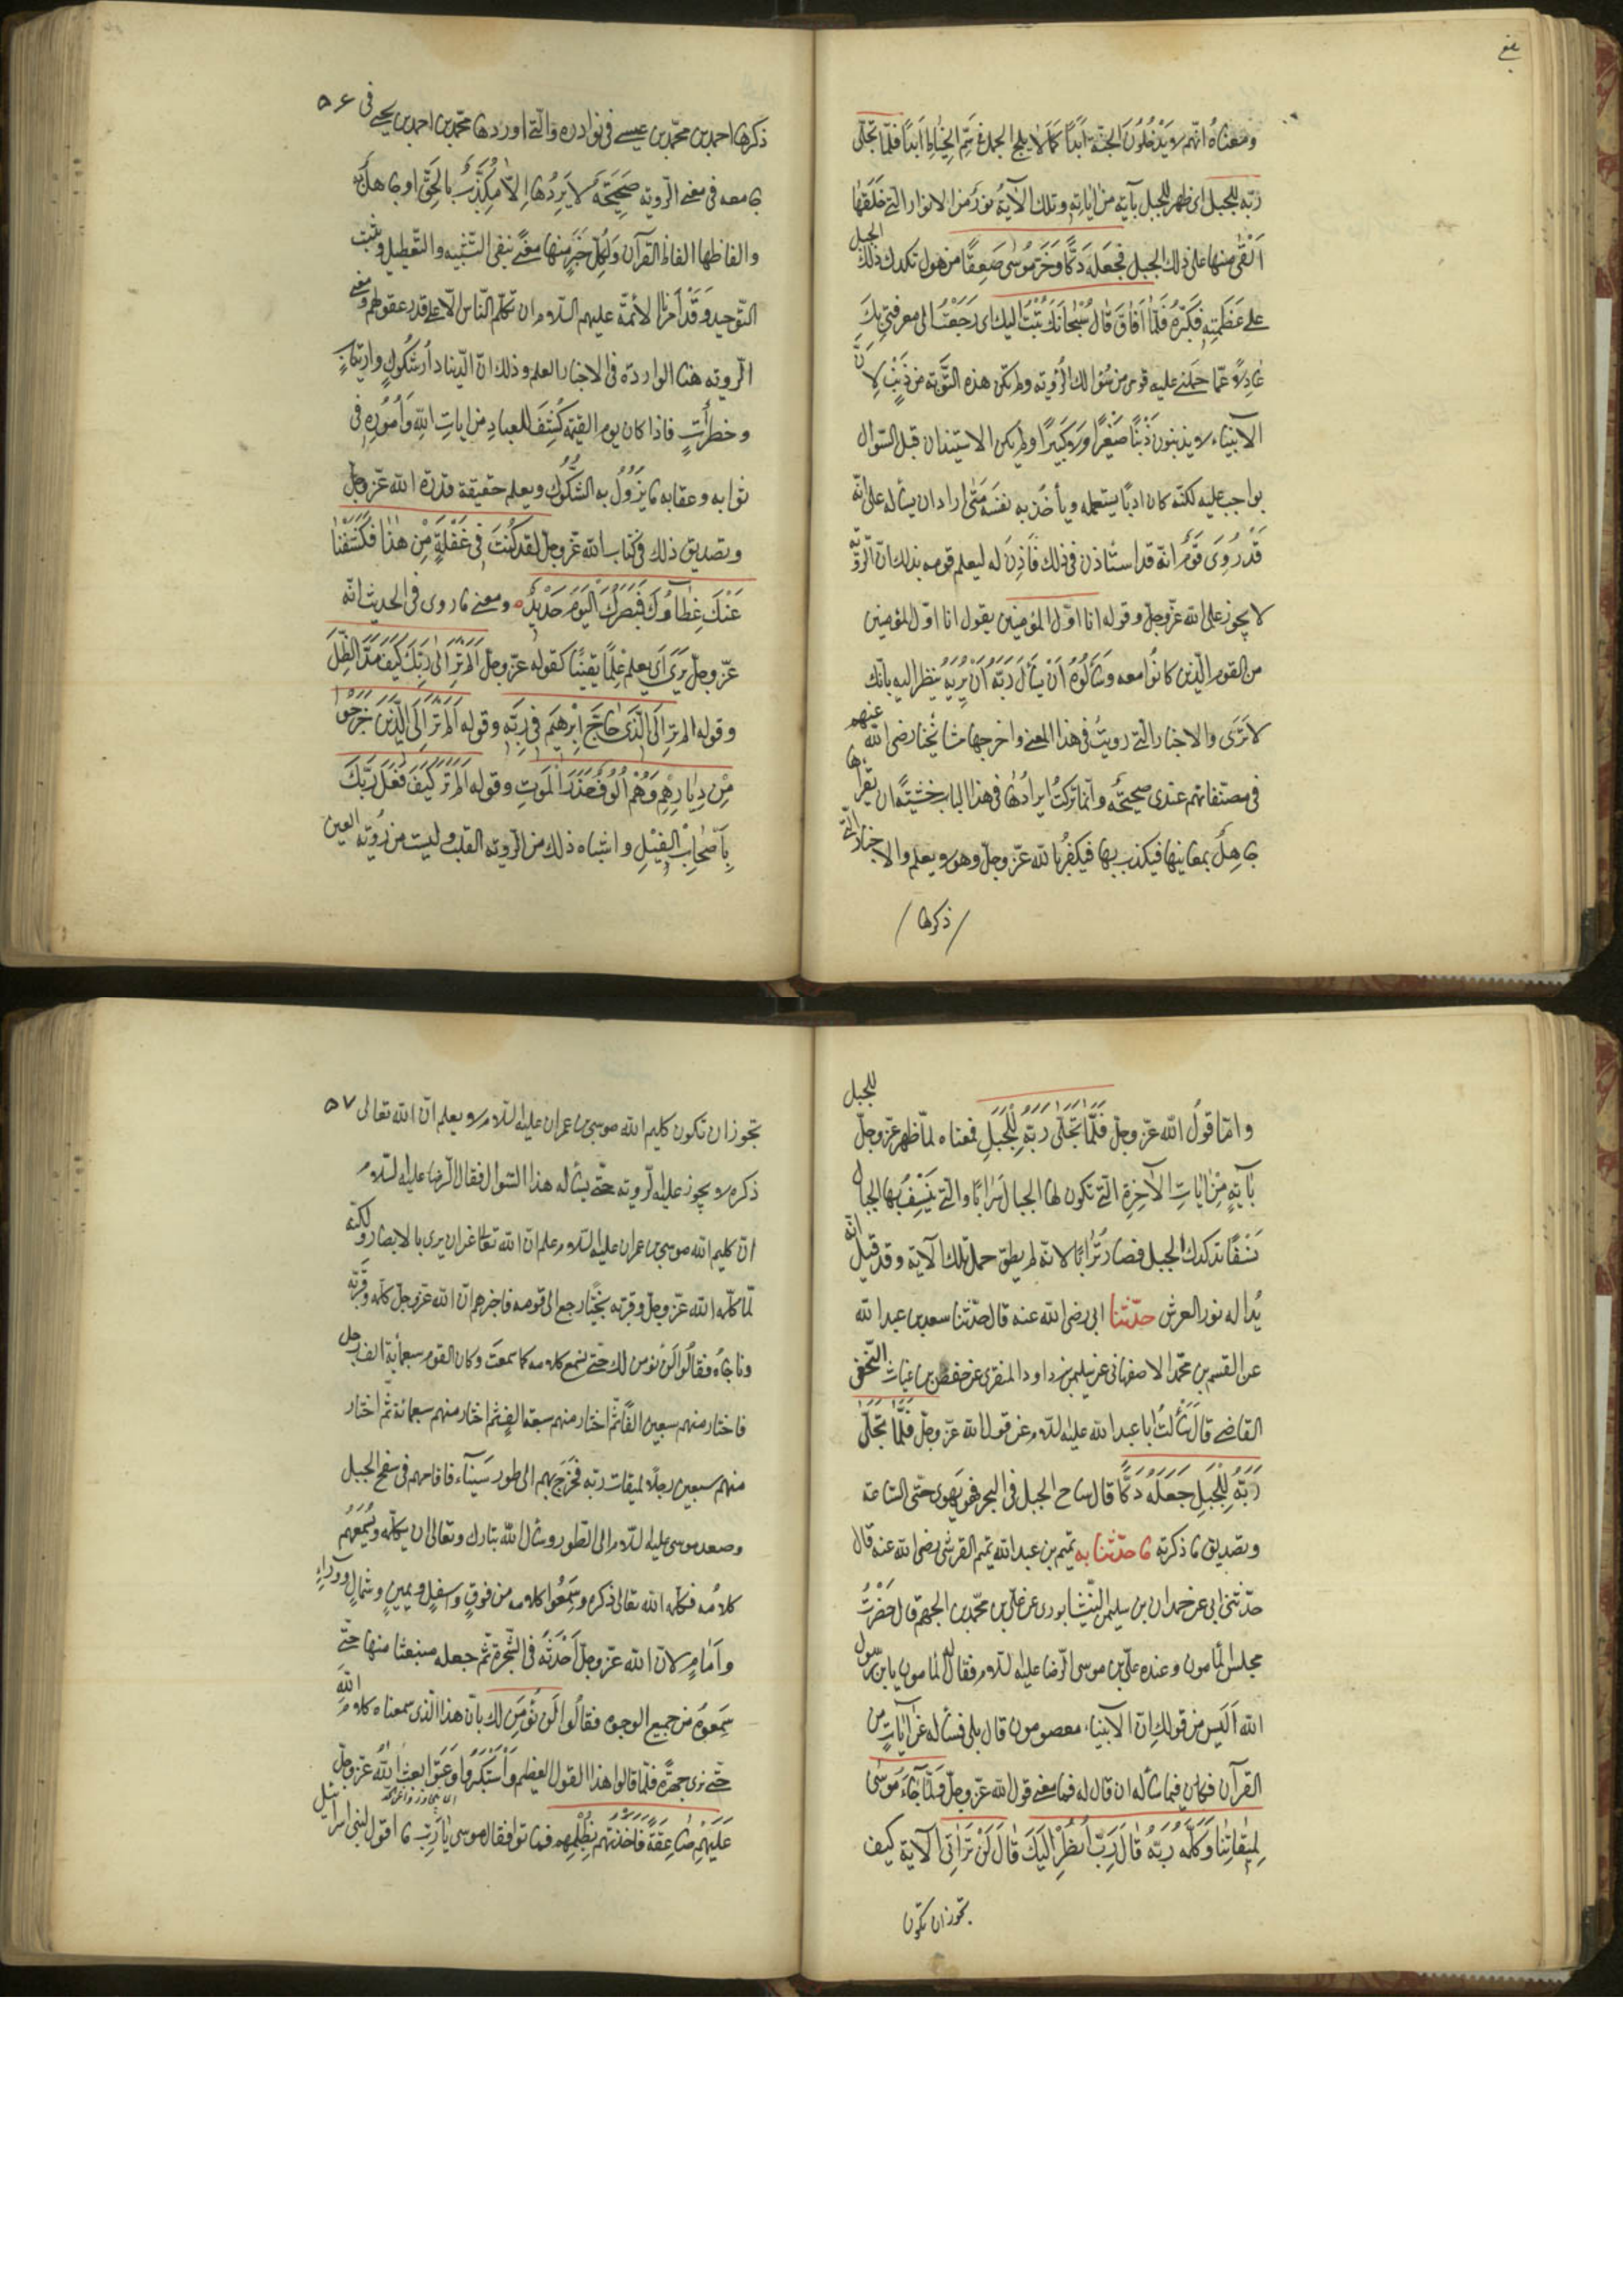 ومعناه انّهم لا يَدْخُلُونَ الجنّة اَبَداً كما لا يلج الجمل في سَمِّ الخِيٰاطِ اَبَداً فلمّا تجلّى
ربّه للجبل اى ظهر للجبل بآية من اٰيٰاته وتلك الاٰية نورٌ من الانوار الّتى خلقها
اَلْقٰى منها على ذلك الجبل فجعله دَكّاً وَخَرَّ مُوسٰى صَعِقاً من هول تكدك ذلك الجبل
على عَظَمَتِهِ وَكِبَرِهِ فَلَمّٰا اَفٰاقَ قٰالَ سُبْحٰانَكَ تُبْتُ اليك اى رَجَعْتُ الى معرفتى بِكَ
عٰادِلاً عمّا حملنى عليه قومى من سُؤالك الرّؤية ولم تكن هذه التّوبة من ذَنْبٍ لاَِنَّ
الانبياء لا يذنبون ذَنْباً صَغيراً وَلا كَبيراً ولم يكن الاستيذان قبل السّؤال
بواجب عليه لكنّه كان ادباً يستعمله ويأخُذ به نَفسَه مَتٰى اراد ان يسأله على انّه
قَدْ رَوىٰ قَوْمٌ انه قد استأذن فى ذلك فَاُذِنَ له ليعلم قومه بذلك انّ الرّؤية
لا يجوز على الله عزّ وجلّ وقوله انا اوّل المؤمنين يقول انا اوّل المؤمنين
من القوم الّذين كانُوا معه وَسَأَلُوهُ اَنْ يَسْأَلَ رَبَّهُ اَنْ يُرِيَهُ ينظر اليه بانّك
لا تَرٰى والاخبار الّتى رويتُ فى هذا المعنى واخرجها مشايخنا رضى الله عنهم
فى مصنفاتهم عندى صحيحَةٌ وانّما تركتُ ايرٰادَها فى هذا الباب خشيةً ان يَقْرَاَهٰا
جاهِلٌ بمعانيها فيكذب بها فيكفُرُ بالله عزّ وجلّ وهو لا يعلم والاخبار الّتى
ذكرها
ذكرها احمد بن محمّد بن عيسى فى نوادره والّتى اوردها محمّد بن احمد بن يحيى فى ٥٦
جامعه فى معنى الرّوية صَحيحَةٌ لا يَرُدُّها اِلاّ مُكَذِّبٌ بِالْحَقِّ او جاهل به
والفاظها الفاظ القرآن وَلِكُلّ خَبَرٍ منها معنىً ينفى التّشبيه والتّعطيل ويثبت
التّوحيد وَقَدْ اَمَرَنَا الائمّة عليهم السّلام ان نكلّم النّاس الّا على قدر عقولهم ومعنى
الرّوية هنا الواردة فى الاخبار العلم وذلك انّ الدّنيا دارُ شُكُوكٍ وارتيابٍ
وخطراتٍ فاذا كان يوم القيمة كُشِفَ للعبادِ من اٰياتِ اللهِ وَاُمُورِهِ فى
ثوابه وعقابه ما يَزُولُ به الشُّكُوكُ ويعلم حقيقة قدرة الله عزّ وجلّ
وتصديق ذلك فى كتاب الله عزّ وجلّ لقد كُنْتَ فِى غَفْلَةٍ مِنْ هٰذٰا فَكَشَفْنٰا
عَنْكَ غِطٰاءَكَ فَبَصَرُكَ الْيَوْمَ حَديدٌ ومعنى ما روى فى الحديث انّه
عزّ وجلّ يُرٰى اَى يعلم عِلْماً يَقيناً كقوله عزّ وجلّ اَلَمْ تَرَ اِلٰى رَبِّكَ كَيْفَ مَدَّ الظِّلَّ
وقوله الم تر اِلَى الَّذى حٰاجَّ اِبْرهيمَ فى رَبِّه وقوله اَلَمْ تَرَ اِلَى الَّذينَ خَرَجُوا
مِنْ دِيٰارِهِمْ وَهُمْ اُلُوفٌ حَذَرَ الْمَوتِ وقوله اَلَمْ تَرَ كَيْفَ فَعَلَ رَبُّكَ
بِاَصْحٰابِ الْفيٖلِ واشباه ذلك من الرّوية القلب وليست من رُؤية العين
وامّا قولُ الله عزّ وجلّ فَلَمّٰا تَجَلّٰى رَبُّهُ لِلْجَبَلِ فمعناه لمّا ظهر عزّ وجلّ للجبل
بآيةٍ مِنْ اٰيٰاتِ الاٰخِرَةِ الّتى تكون لها الجبال سَرٰاباً والّتى يَنْسِفُ بها الجبال
نَسْفاً تدكدك الجبل فصار تُرٰاباً لانّه لم يطق حمل تلك الآية وقد قيل انّه
بُدا له نور العرش حدّثنا ابى رضى الله عنه قال حدّثنا سعد بن عبد الله
عن القسم بن محمّد الاصفهانى عن سليمن بن داود المنقرى عن حفص بن غياث النّخعى
القاضى قال سَأَلْتُ ابا عبد الله عليه السّلام عن قول الله عزّ وجلّ فَلَمّٰا تَجَلّٰى
رَبُّهُ لِلْجَبَلِ جَعَلَهُ دَكّاً قال ساح الجبل فى البحر فهو يَهوى حتّى السّاعة
وتصديق ما ذكرته ما حدّثنا به تميم بن عبد الله تميم القرشى رضى الله عنه قال
حدّثنى ابى عن حمدان بن سليمن النّيشابورى عن علىّ بن محمّد بن الجهم قال حَضَرْتُ
مجلس المأمون وعنده علىّ بن موسى الرّضا عليه السّلام فقال له المأمون يابن رسول
الله اَلَيس من قولك انّ الانبياء معصومون قال بلى فسأله عن اٰياتٍ من
القرآن فكان فيما سأله ان قال له فما معنى قول الله عزّ وجلّ وَلَمّٰا جٰاءَ مُوسٰى
لِميقٰاتِنٰا وَكَلَّمَهُ رَبُّهُ قٰالَ رَبِّ اَنْظُرْ اِلَيْكَ قٰالَ لَنْ تَرٰانى الآية كيف
تجوز ان تكون
تجوز ان تكون كليم الله موسى بن عمران عليه السّلام لا يعلم انّ الله تعالى ٥٧
ذكره لا يجوز عليه الرّوية حتّى يسأله هذا السّوال فقال الرّضا عليه السّلام
انّ كليم الله موسى بن عمران عليه السّلام علم انّ الله تعالى عن ان يرى بالابصار ولكنّه
لمّا كلّمه الله عزّ وجلّ وقرّبه نَجيّاً رجع الى قومه فاخبرهم انّ الله عزّ وجلّ كلّمه وقرّبه
وناجٰاهُ فقالُوا لَنْ نؤمن لك حتّى نسمع كلامه كما سمعتَ وكان القوم سبعمأية الف رجل
فاختار منهم سبعين الفاً ثمّ اختار منهم سبعة الفٍ ثمّ اختار منهم سبعمائة ثمّ اختار
منهم سبعين رجلاً لميقات ربّه فَخَرَجَ بهم الى طور سَيناء فاقامهم فى سفح الجبل
وصعد موسى عليه السّلام الى الطّور وسأل الله تبارك وتعالى ان يكلّمه ويُسْمِعَهُم
كلامُه فكلّمه الله تعالى ذكره وسَمِعُوا كلامه من فوقٍ واسفل ويمينٍ وشمالٍ ووَرٰاءٍ
واَمٰامٍ لانّ الله عزّ وجلّ اَحْدَثَهُ فى الشّجرة ثمّ جعله منبعثا منها حتّى
سَمِعوهُ من جميع الوجوه فقالُوا لَنْ نُؤْمِنَ لك بانّ هذا الّذى سمعناه كلام الله
حتّى نرى جهرةً فلمّا قالوا هذا القول العظيم وَاسْتَكْبَرُوا وَعَتَوْا بعث الله عزّ وجلّ
عَلَيْهِمْ صٰاعِقَةً فَاَخَذَتْهُم بِظُلْمِهِمْ فماتوا فقال موسى يٰا رَبِّ ما اقول لبنى اسرائيل